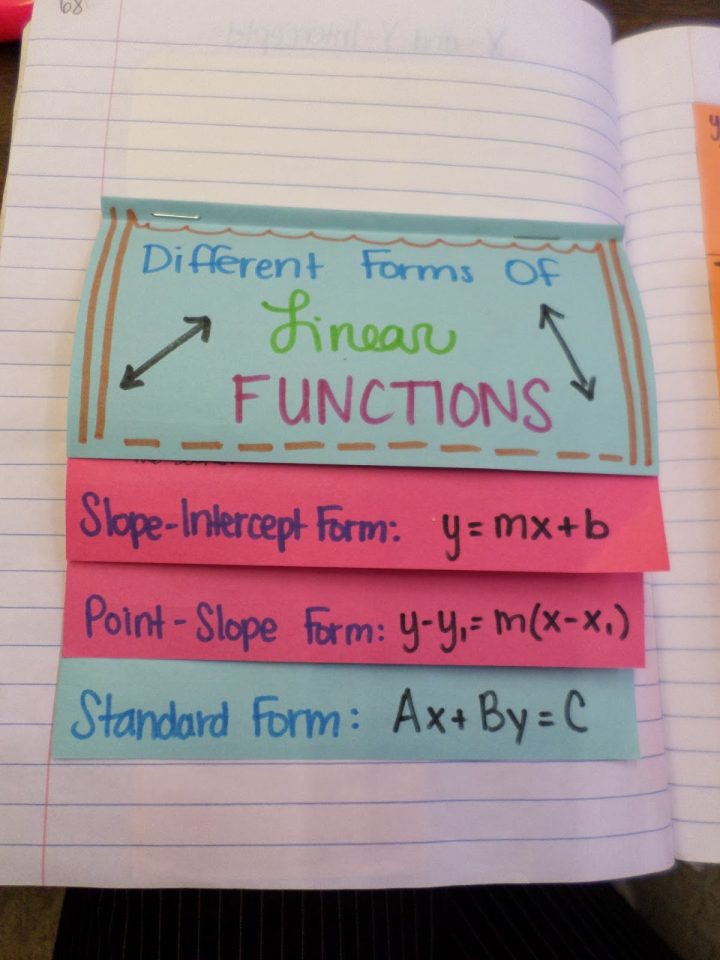 68
X- and Y-Intercepts
Different Forms Of
Linear
FUNCTIONS
Slope-Intercept Form: y = mx + b
Point-Slope Form: y-y₁= m(x-x₁)
Standard Form: Ax + By = C
y